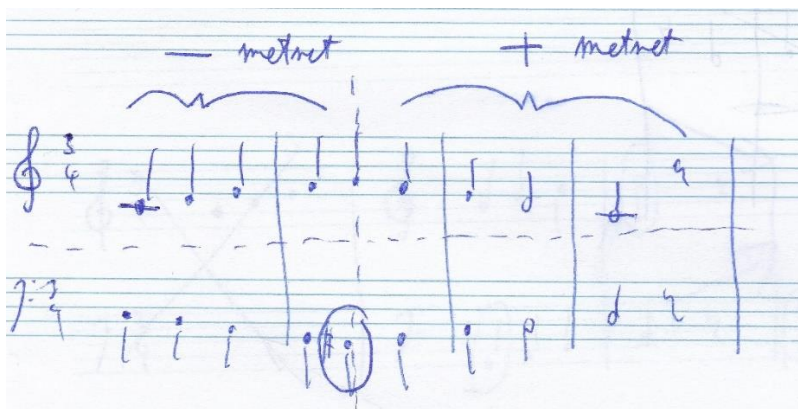 — metret + metret
3
4
3
4